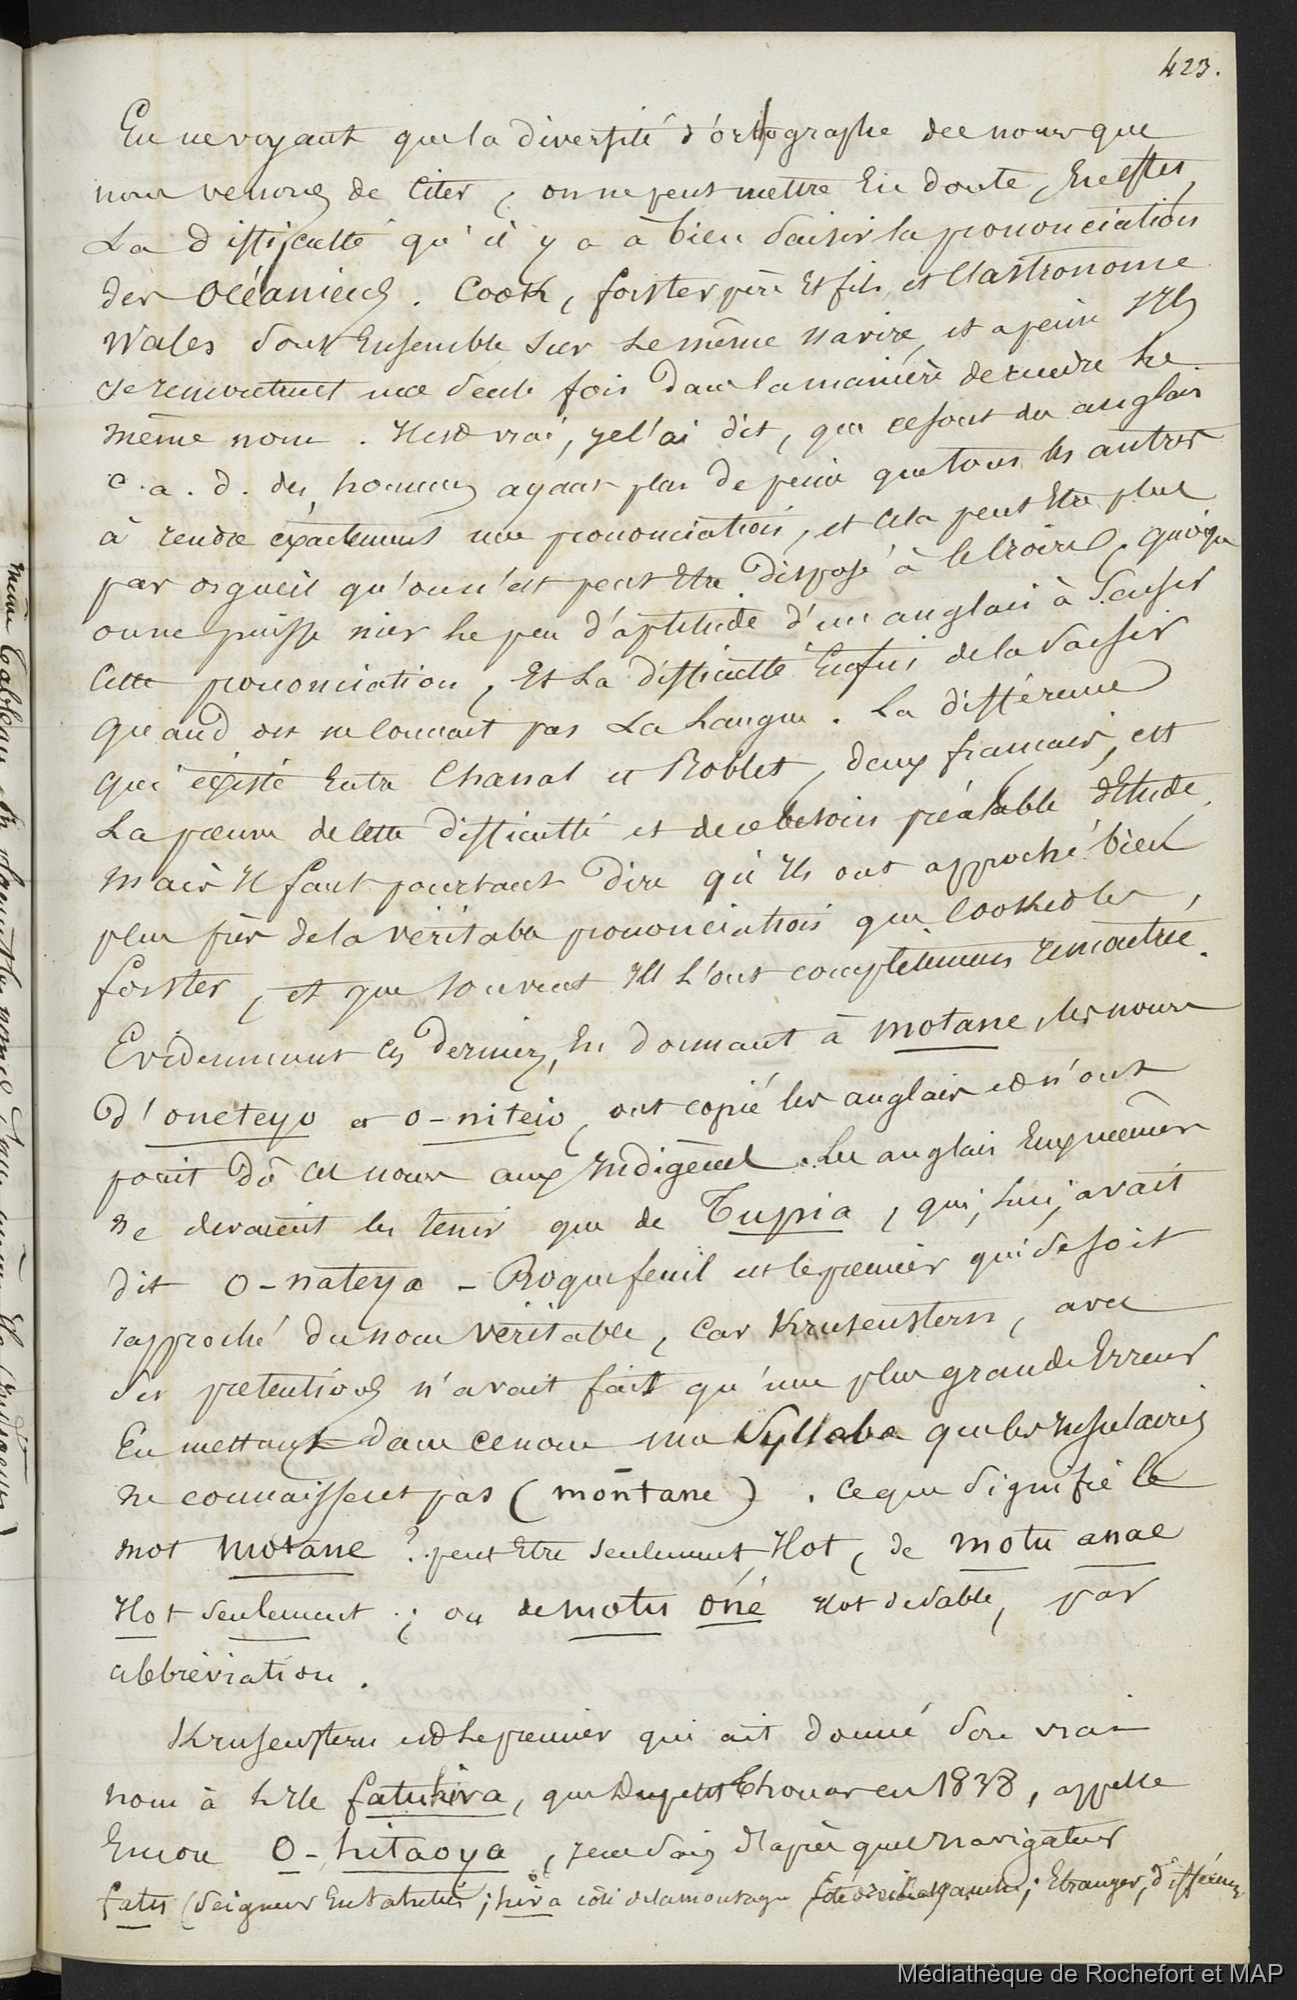 423.
En ne voyant que la diversité d'orthographe des noms que
nous venons de citer, on ne peut mettre En doute, En effet,
La difficulté qu'il y a à bien saisir la prononciation
des Océaniens. Cook, forster père Et fils, et l'astronome
Wales sont Ensemble sur le même navire, et a peine Ils
se rencontrent une seule fois dans la manière de rendre le
même nom. Il est vrai, je l'ai dit, que ce sont des anglais
c. a. d. des hommes ayant plus de peine que tous les autres
à rendre éxactement une prononciation, et cela peut Etre plus
par orgueil qu'on n'est peut Etre disposé à le croire, quoique
on ne puisse nier le peu d'aptitude d'un anglais à saisir
cette prononciation, Et La difficulté Enfin de la saisir
quand on ne connait pas La Langue. La différence
qui éxiste Entre Chanal et Roblet, deux français, est
La preuve de cette difficulté et de ce besoin préalable d'Etude,
mais Il faut pourtant dire qu'Ils ont approché bien
plus près de la véritable prononciation que Cook et les
forster, et que souvent Ils L'ont complètement rencontrée.
Evidemment ces derniers, En donnant à motane, les noms
d'oneteyo et o-niteio, ont copié les anglais et n'ont
point dû ces noms aux Indigènes. Les anglais Eux mêmes
ne devaient les tenir que de Tupia, qui, lui, avait
dit o-nateya - Roquefeuil est le premier qui se soit
rapproché du nom véritable, car Krusenstern, avec
ses prétentions n'avait fait qu'une plus grande Erreur
En mettant dans ce nom une syllabe que les Insulaires
ne connaissent pas (montane). Ce que signifie le
mot motane? peut Etre seulement Ilot, de motu anae
Ilot seulement; ou de motu oné Ilot de sable, par
abbréviation.
Krusenstern est le premier qui ait donné son vrai
nom à L'Ile fatuhiva, que Dupetit Thouars en 1838, appelle
Encore O-hitaoya,
fatu (seigneur En tahitien; hiva côté de la montagne Etranger, différens
même tableau